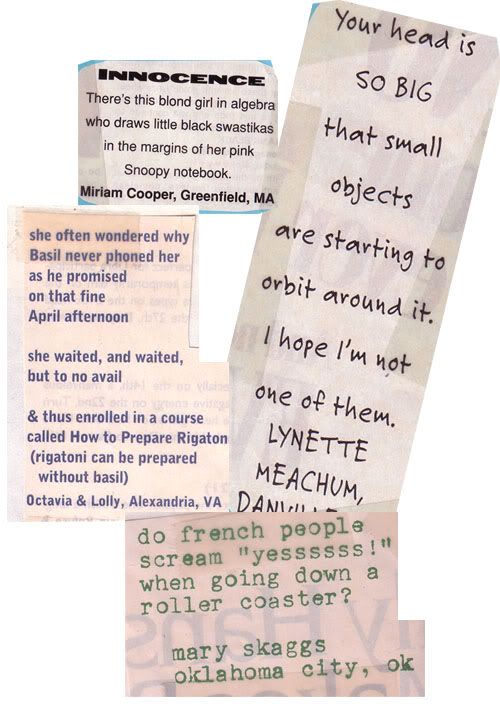 INNOCENCE
There's this blond girl in algebra
who draws little black swastikas
in the margins of her pink
Snoopy notebook.
Miriam Cooper, Greenfield, MA
Your head is
SO BIG
that small
objects
are starting to
orbit around it.
I hope I'm not
one of them.
LYNETTE
MEACHUM,
she often wondered why
Basil never phoned her
as he promised
on that fine
April afternoon
she waited, and waited,
but to no avail
& thus enrolled in a course
called How to Prepare Rigaton
(rigatoni can be prepared
without basil)
Octavia & Lolly, Alexandria, VA
do french people
scream "yessssss!"
when going down a
roller coaster?
mary skaggs
oklahoma city, ok